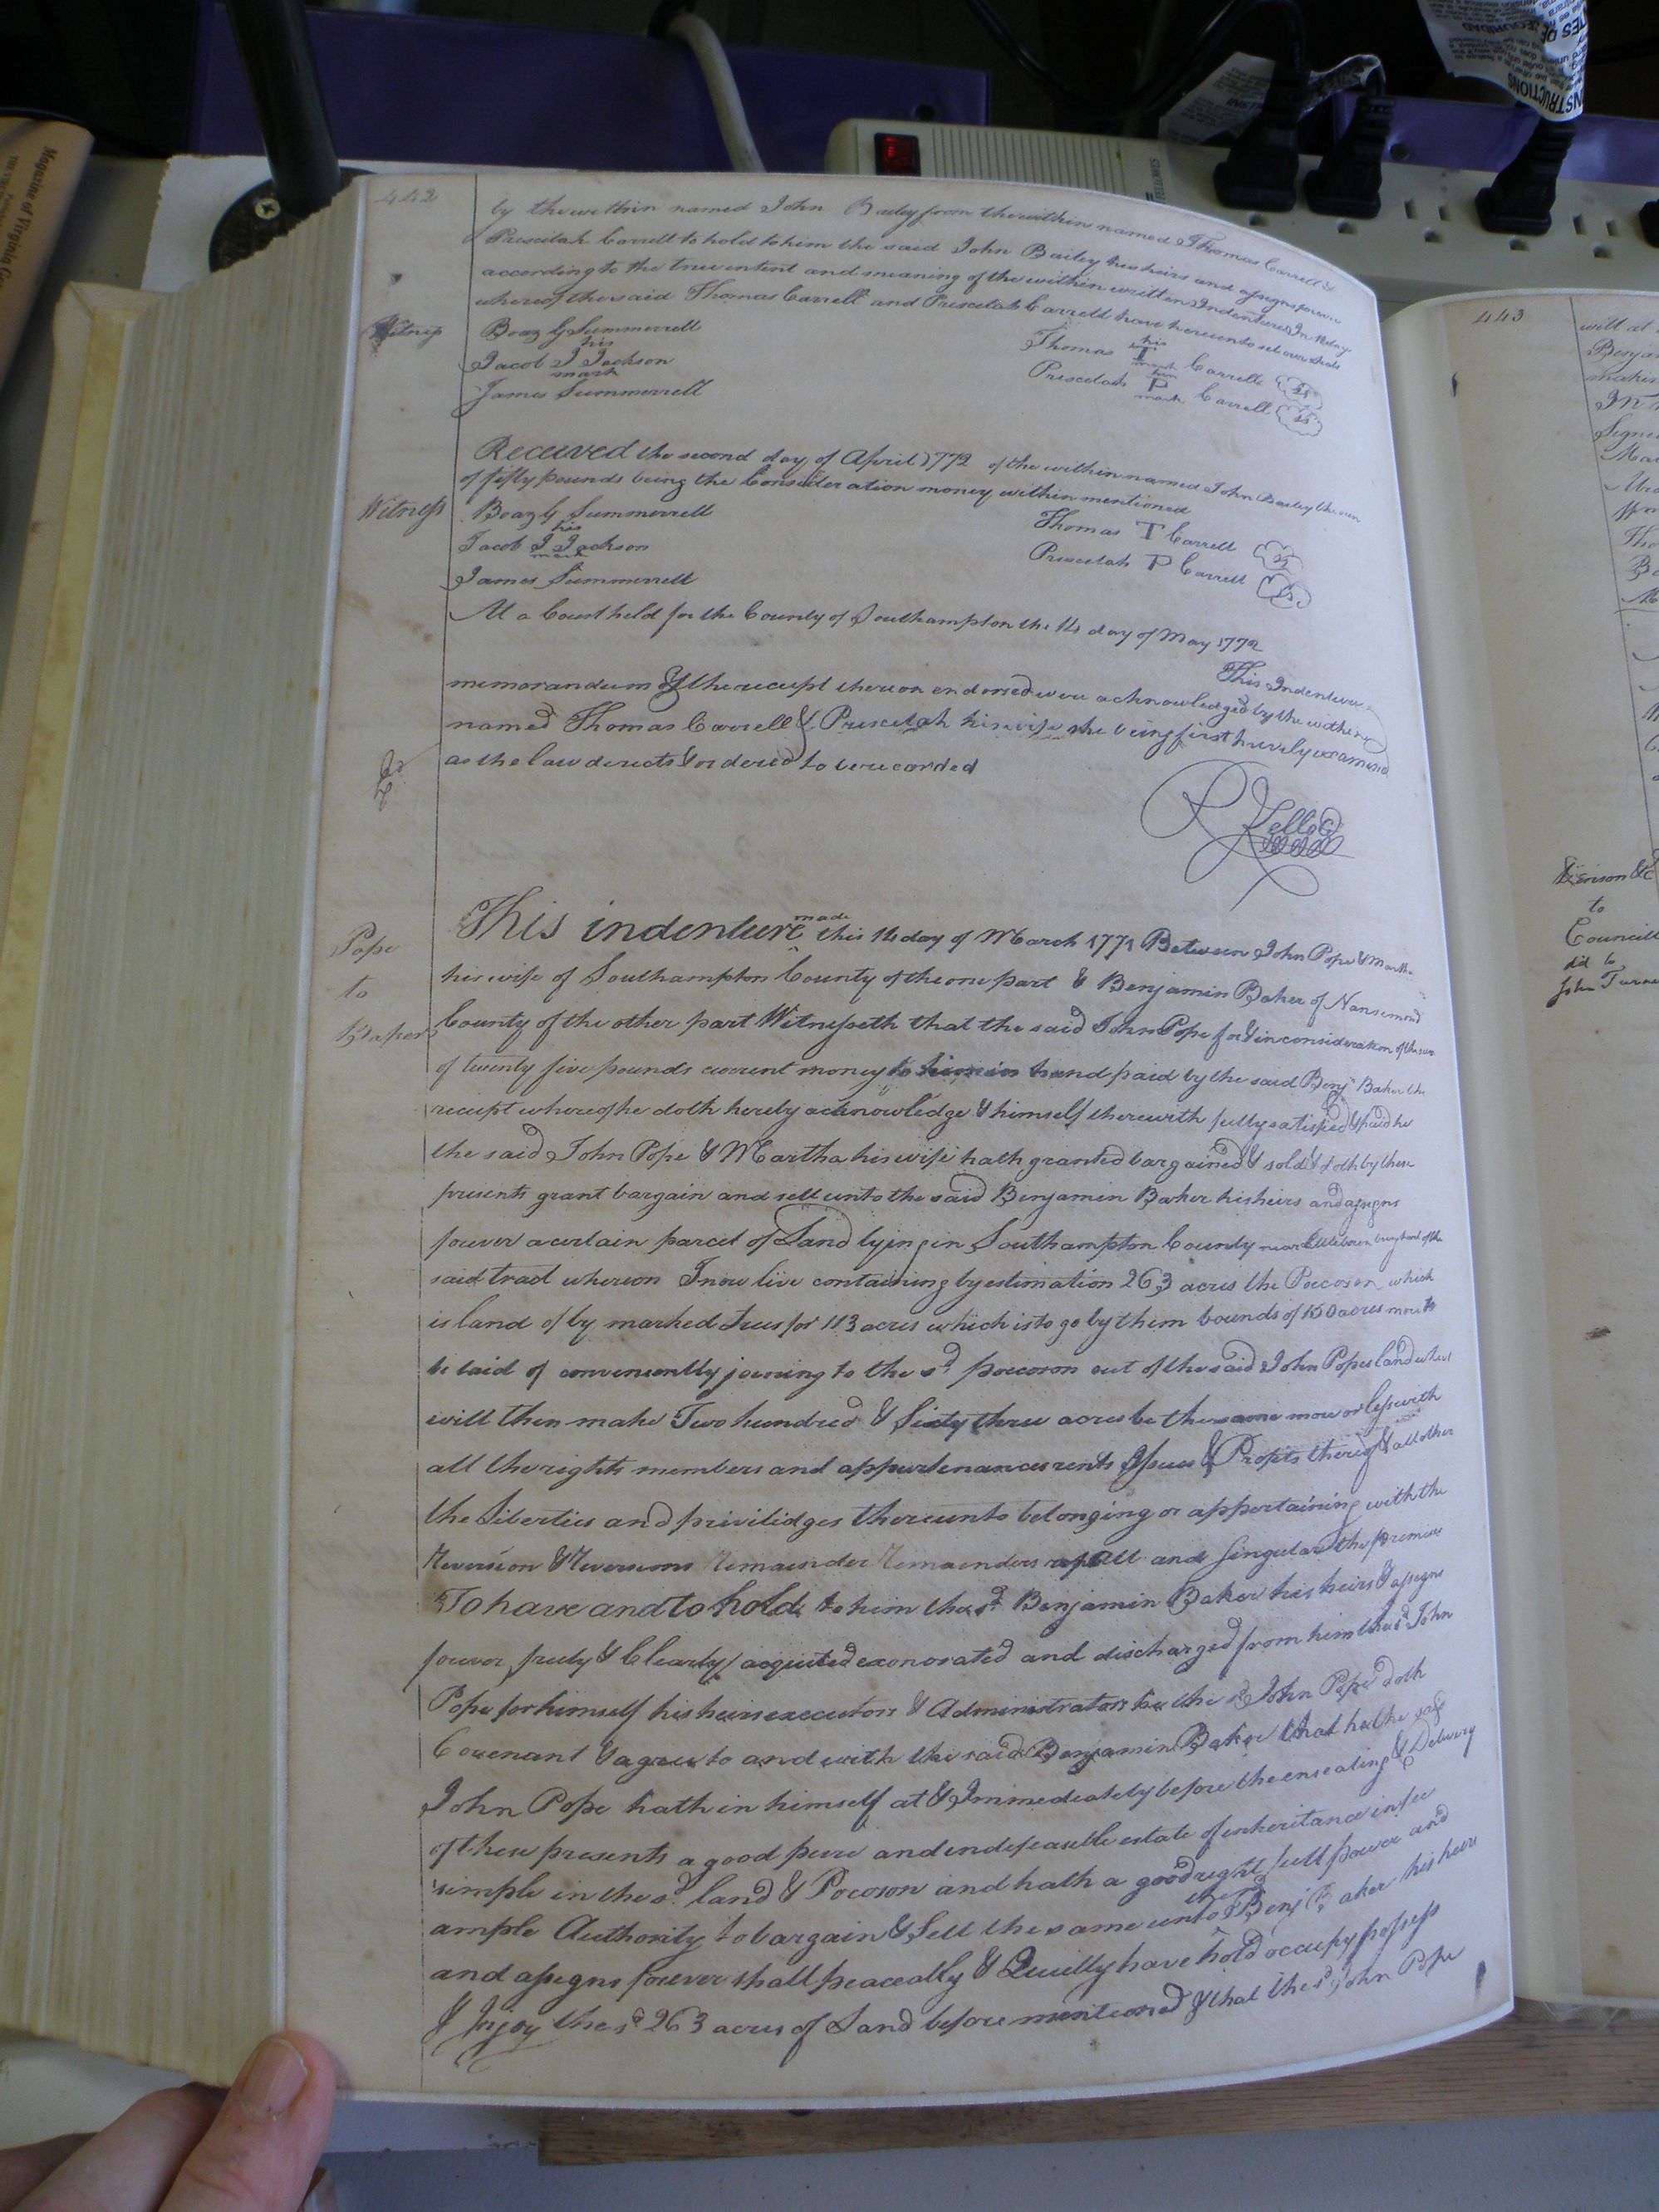 442
by the within named John Bailey from the within named Thomas Carrell &
Prescelah Carrell to hold to him the said John Bailey his heirs and assigns forever
according to the true entent and meaning of the within written Indenture In
whereof the said Thomas Carrell and Prescelah Carrell have hereunto set our
Witness
Boaz G Summerrell
his
Thomas T Carrell
his
Jacob J Jackson
mark
Prescelah P Carrell
mark
James Summerrell
Received the second day of April 1772 of the within named John Bailey the sum
of fifty pounds being the Consideration money within mentioned
Witness
Boaz G Summerrell
Thomas T Carrell
his
Jacob J Jackson
mark
Prescelah P Carrell
James Summerrell
At a Court held for the County of Southampton the 14 day of May 1772
This Indenture
memorandum & the receipt thereon endorsed were acknowledged by the within
named Thomas Carrell & Prescelah his wife she being first
as the law derects & ordered to be recorded
Pope
to
Baker
This indenture made this 14 day of March 1771 Between John Pope & Martha
his wife of Southampton County of the one part & Benjamin Baker of Nansemond
County of the other part Witnesseth that the said John Pope for & in consideration of the sum
of twenty five pounds current money to him in hand paid by the said Benj Baker the
receipt whereof he doth hereby acknowledge & himself therewith fully satisfied & paid he
the said John Pope & Martha his wife hath granted bargained & sold & doth by these
presents grant bargain and sell unto the said Benjamin Baker his heirs and assigns
forever a certain parcel of Land lying in Southampton County near being part of the
said tract whereon I now live containing by estimation 263 acres the Poccoson which
is land of by marked trees for 113 acres which is to go by them bounds of 150 acres more to
be laid of conveniently joining to the sd poccoson out of the said John Popes land when
will then make Two hundred & Sixty three acres be the same more or less with
all the rights members and appurtenances rents Issues & Profits thereof & all other
the Liberties and privilidges thereunto belonging or appertaining with the
Reversion & Reversions Remainder Remainders of all and singular the premises
To have and to hold to him the sd Benjamin Baker his heirs & assigns
forever freely & Clearly acquited exonorated and discharged from him the sd John
Pope for himself his heirs executors & Administrators he the sd John Pope doth
Covenant & agree to and with the said Benjamin Baker that he the said
John Pope hath in himself at & Immedeately before the ensealing & Delivery
of these presents a good pure and indefeasable estate of inheritance in fee
simple in the sd land & Pocoson and hath a good right full power and
ample Authority to bargain & Sell the same unto the sd Benj Baker his heirs
and assigns forever shall peaceably & Quietly have hold occupy possess
& Injoy the sd 263 acres of Land before mentioned & that the sd John Pope
443
will at
Benja
makin
In
Signe
to
Councill
John Turne
Magazine of Virginia
FELLOWES
INSTRUCTIONS